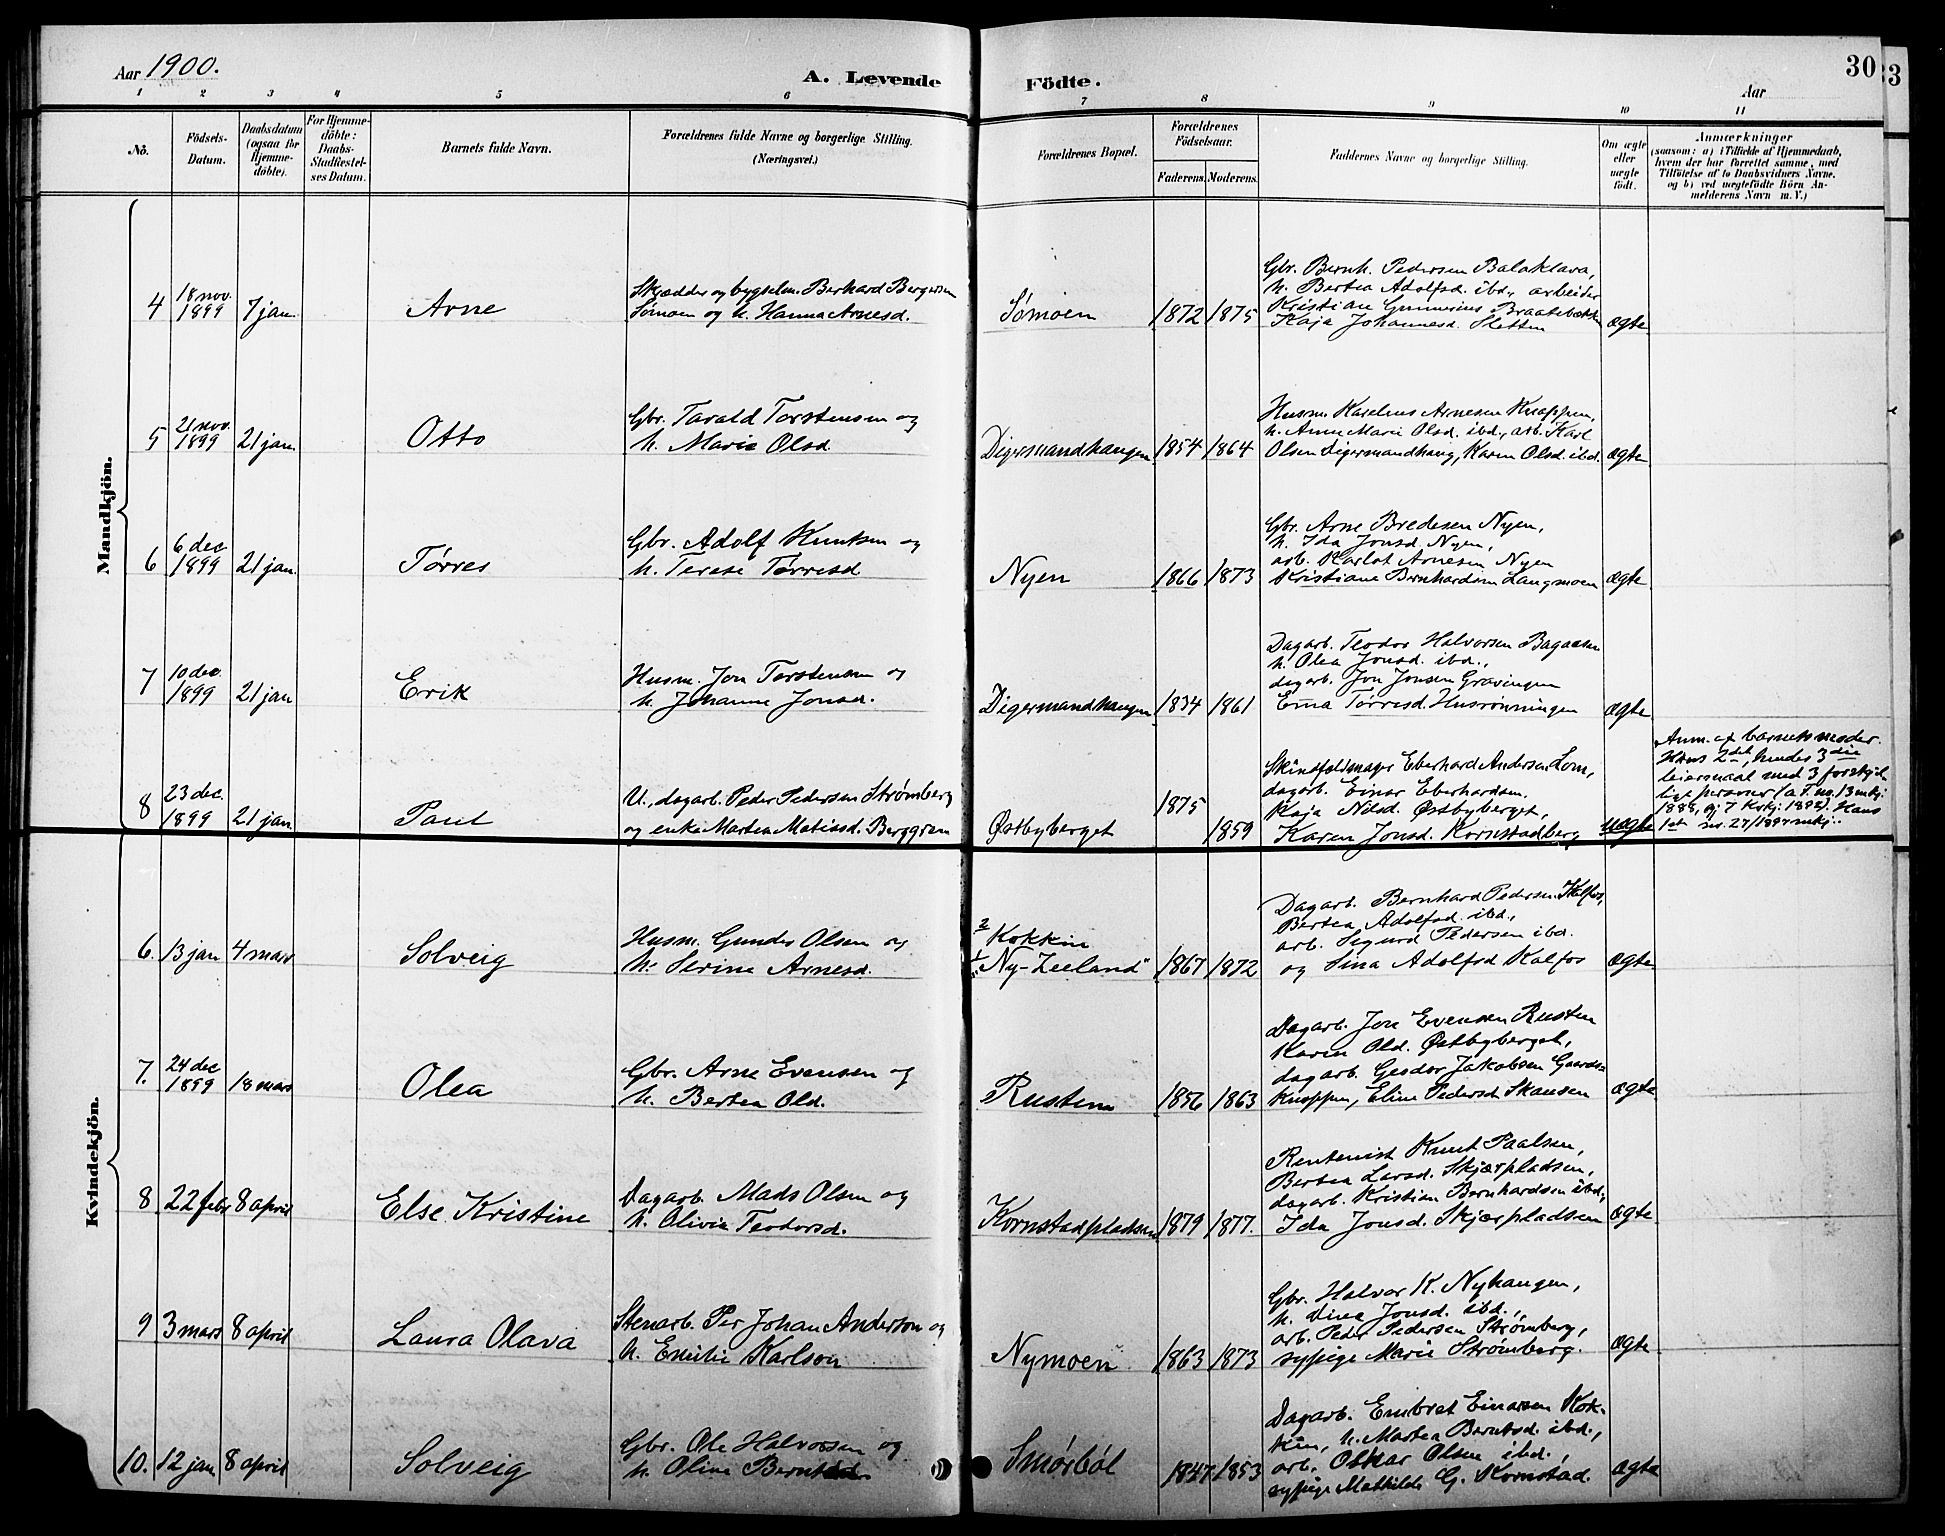 Aar 1900.
A. Levende Födte.
30
33
Aar
1 2 3 4 5 6 7 8 9 10 11
No.
Födsels-
Datum.
Daabsdatum
(ogsaa for
Hjemme-
döbte).
For Hjemme-
döbte:
Daabs-
Stadfæstel-
ses Datum.
Barnets fulde Navn.
Forældrenes fulde Navne og borgerlige Stilling.
(Næringsvei.)
Forældrenes Bopæl.
Forældrenes
Födselsaar.
Faderens. Moderens.
Faddernes Navne og borgerlige Stilling.
Om ægte
eller
uægte
födt.
Anmærkninger
(saasom: a) i Tilfælde af Hjemmedaab,
hvem der har forrettet samme, med
Tilföielse af to Daabsvidners Navne.
og b) ved uægtefödte Börn An-
melderens Navn m. V.)
Mandkjön.
4
18 nov.
1899
7 jan.
Arne
Skrædder og bygselm. Berhard Bergersen
Sømoen og h. Hanna Arnesd.
Sømoen
1872 1875
Gbr. Bernh. Pedersen Balaklava,
h. Bertea Adolfsd. ibd., arbeider
Kristian Gunerius Braatebækken
Kaja Johannesd. Sletten
ægte
5
21 nov.
1899
21 jan.
Otto
Gbr. Tarald Torstensen og
h. Marie Olsd.
Digermandhaugen
1854 1864
Husm. Karelius Arnesen Knappen,
h. Anne Marie Olsd. ibd., arb. Karl
Olsen Digermandhaug, Karen Olsd. ibd.
ægte
6
6 dec
1899
21 jan.
Tørres
Gbr. Adolf Knutsen og
h. Terese Tørresd
Nyen
1866 1873
Gbr. Arne Bredesen Nyen,
h. Ida Jonsd. Nyen,
arb. Karlot Arnesen Nyen
Kristiane Bernhardine Langmoen
ægte
7
10 dec.
1899
21 jan
Erik
Husm. Jon Torstensen og
h. Johanne Jonsd.
Digermandhaugen
1834 1861
Dagarb. Teodor Halvorsen Bagaasen
h. Olea Jonsd. ibd.,
dagarb. Jon Jonsen Gravingen
Ema Tørresd. Husrønningen
ægte
8
23 dec.
1899
21 jan
Paul
U., dagarb. Peder Pedersen Strømberg
og enke Martea Matiasd. Berggren
Østbyberget
1875
1859
Skindfeldmager Eberhard Andersen Lom,
dagarb. Einar Eberhardsen.
Kaja Nilsd. Østbyberget,
Karen Jonsd. Kornstadberg
uægte
Anm. af barnets moder.
Hans 2det, hendes 3die
leiermaal med 3 forskjel-
lige personer (a T. no. 13 mkj.
1888, oj 7 Kvkj. 1892). Hans
1st no. 27/1894 mkj.
Kvindekjön.
6.
13 jan
4 mars
Solveig
Husm. Gunder Olsen og
h. Serine Arnesd.
2 Kokkin
1 "Ny-Zeeland"
1867 1872
Dagarb. Bernhard Pedersen Kalfos,
Bertea Adolfsd. ibd.,
arb. Sigurd Pedersen ibd.
og Sina Adolfsd Kalfos
ægte
7.
24 dec
1899
18 mars
Olea
Gbr. Arne Evensen og
h. Bertea Old.
Rusten
1856 1863
Dagarb. Jon Evensen Rusten
Karen Old. Østbyberget,
dagarb. Gesdor Jakobsen
Knappen, Eline Pedersd. Skansen
ægte
8
22 febr
8 april
Else Kristine
Dagarb. Mads Olsen og
h. Olivia Teodorsd.
Kornstadpladsen
1879 1877.
Rentenist Knut Paalsen,
Bertea Larsd. Skjærpladsen,
dagarb. Kristian Bernhardsen ibd.,
Ida Jonsd. Skjærpladsen
ægte
9
3 mars
8 april
Laura Olava
Stenarb. Per Johan Anderson og
h. Emilie Karlson
Nymoen
1863 1873
Gbr. Halvor K. Nyhaugen,
h. Dina Jonsd. ibd.,
arb. Peder Pedersen Strømberg,
sypige Marie Strømberg.
ægte
10.
12 jan
8 april
Solveig
Gbr. Ole Halvorsen og
h. Oline Berntsd.
Smørbøl
1847 1853
Dagarb. Embret Einarsen Kok-
kin, h. Martea Berntsd. ibd.,
arb. Oskar Olsen ibd.
sypige Mathilde G. Kornstad.
ægte